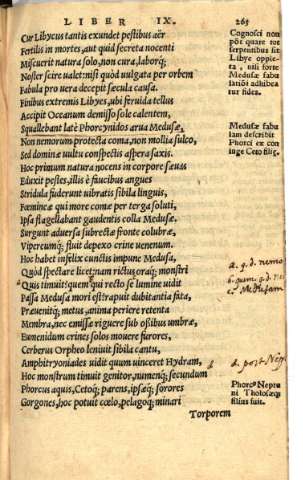 LIBER IX. 265
Cur Libycus tantis exundet pestibus aër
Fertilis in mortes, aut quid secreta nocenti
Miscuerit natura solo, non cura, laborq;
Noster scire ualet: nisi quòd uulgata per orbem
Fabula pro uera decepit sæcula causa.
Finibus extremis Libyes, ubi feruida tellus
Accipit Oceanum demisso sole calentem,
Squallebant latè Phorcynidos arua Medusæ,
Non nemorum protecta coma, non mollia sulco,
Sed dominæ uultu conspectis aspera saxis.
Hoc primum natura nocens in corpore sæuas
Eduxit pestes, illis è faucibus angues
Stridula fuderunt uibratis sibila linguis,
Fœmineæ qui more comæ per terga soluti,
Ipsa flagellabant gaudentis colla Medusæ.
Surgunt aduersa subrectæ fronte colubræ,
Vipereumq; fluit depexo crine uenenum.
Hoc habet infelix cunctis impune Medusa,
Quòd spectare licet, nam rictus oraq; monstri
Quis timuit: quem qui recto se lumine uidit
Passa Medusa mori est: rapuit dubitantia fata,
Præuenitq; metus, anima periere retenta
Membra, nec emissæ riguere sub ossibus umbræ,
Eumenidum crines solos mouere furores,
Cerberus Orpheo leniuit sibila cantu,
Amphitryoniades uidit quum uinceret Hydram,
Hoc monstrum timuit genitor, numenq; secundum
Phorcus aquis, Cetoq; parens, ipsæq; sorores
Gorgones, hoc potuit cœlo, pelagoq; minari
Torporem
Cognosci non
pōt quare tot
serpentibus sit
Libye oppleta, nisi forte
Medusæ fabulatiōi adhibeatur fides.
Medusæ fabulam describit
Phorci ex coniuge Ceto filiæ.
a. q. d. nemo
Medusam
a. post
Phorcꝰ Neptuni Thoosæq;
filius fuit.